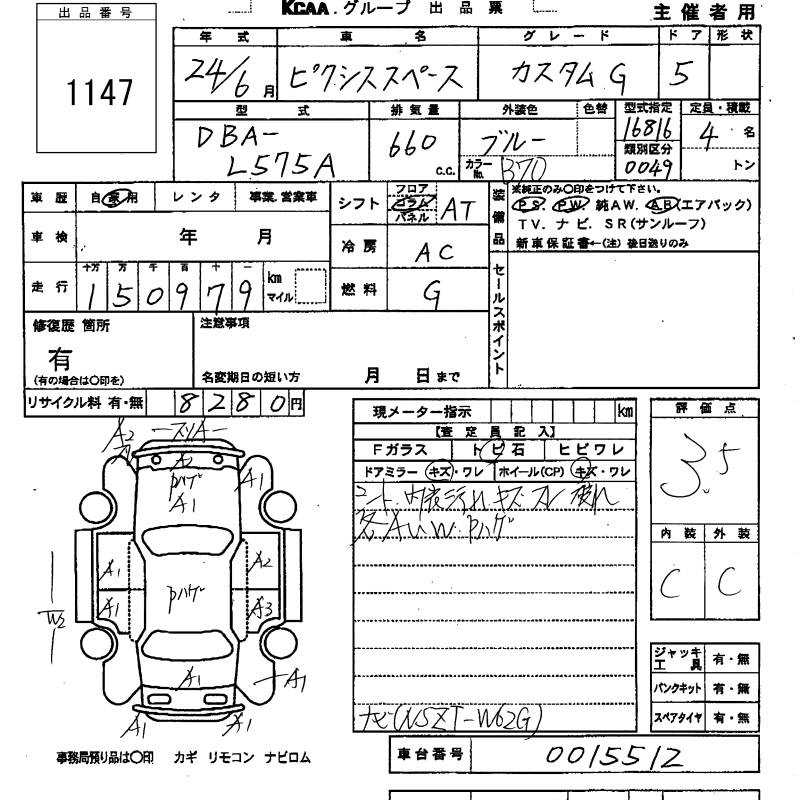 KCAA グループ 出品票
主催者用
出品番号
1147
年式 車名 グレード ドア 形状
24/6月 ピクシススペース カスタムG 5
型式 排気量 外装色 色替 型式指定 定員・積載
DBA-
L575A
660
c.c.
ブルー
カラーNo. B70
16816
類別区分
0049
4名
トン
車歴 自家用 レンタ 事業・営業車
シフト フロア コラム パネル AT
装備品
※純正のみ○印をつけて下さい。
PS PW 純AW. AB(エアバック)
TV. ナビ. SR(サンルーフ)
新車保証書←(注)後日送りのみ
車検 年 月
冷房 AC
走行 十万 万 千 百 十 一
150979 km マイル
燃料 G
セールスポイント
修復歴 箇所
有
(有の場合は○印を)
注意事項
名変期日の短い方 月 日まで
リサイクル料 有・無 8280円
現メーター指示 km
【査定員記入】
Fガラス トビ石 ヒビワレ
ドアミラー キズ・ワレ ホイール(CP) キズ・ワレ
シート、内装汚れ キズ スレ 破れ
各AUW. Pハゲ
ナビ(NSZT-W62G)
評価点
3.5
内装 外装
C C
ジャッキ工具 有・無
パンクキット 有・無
スペアタイヤ 有・無
A2
スリA
A2
Pハゲ
A1
A1
A1
A2
A1
Pハゲ
A3
W2
A1
A1
A1
A1
事務局預り品は○印 カギ リモコン ナビロム
車台番号 0015512